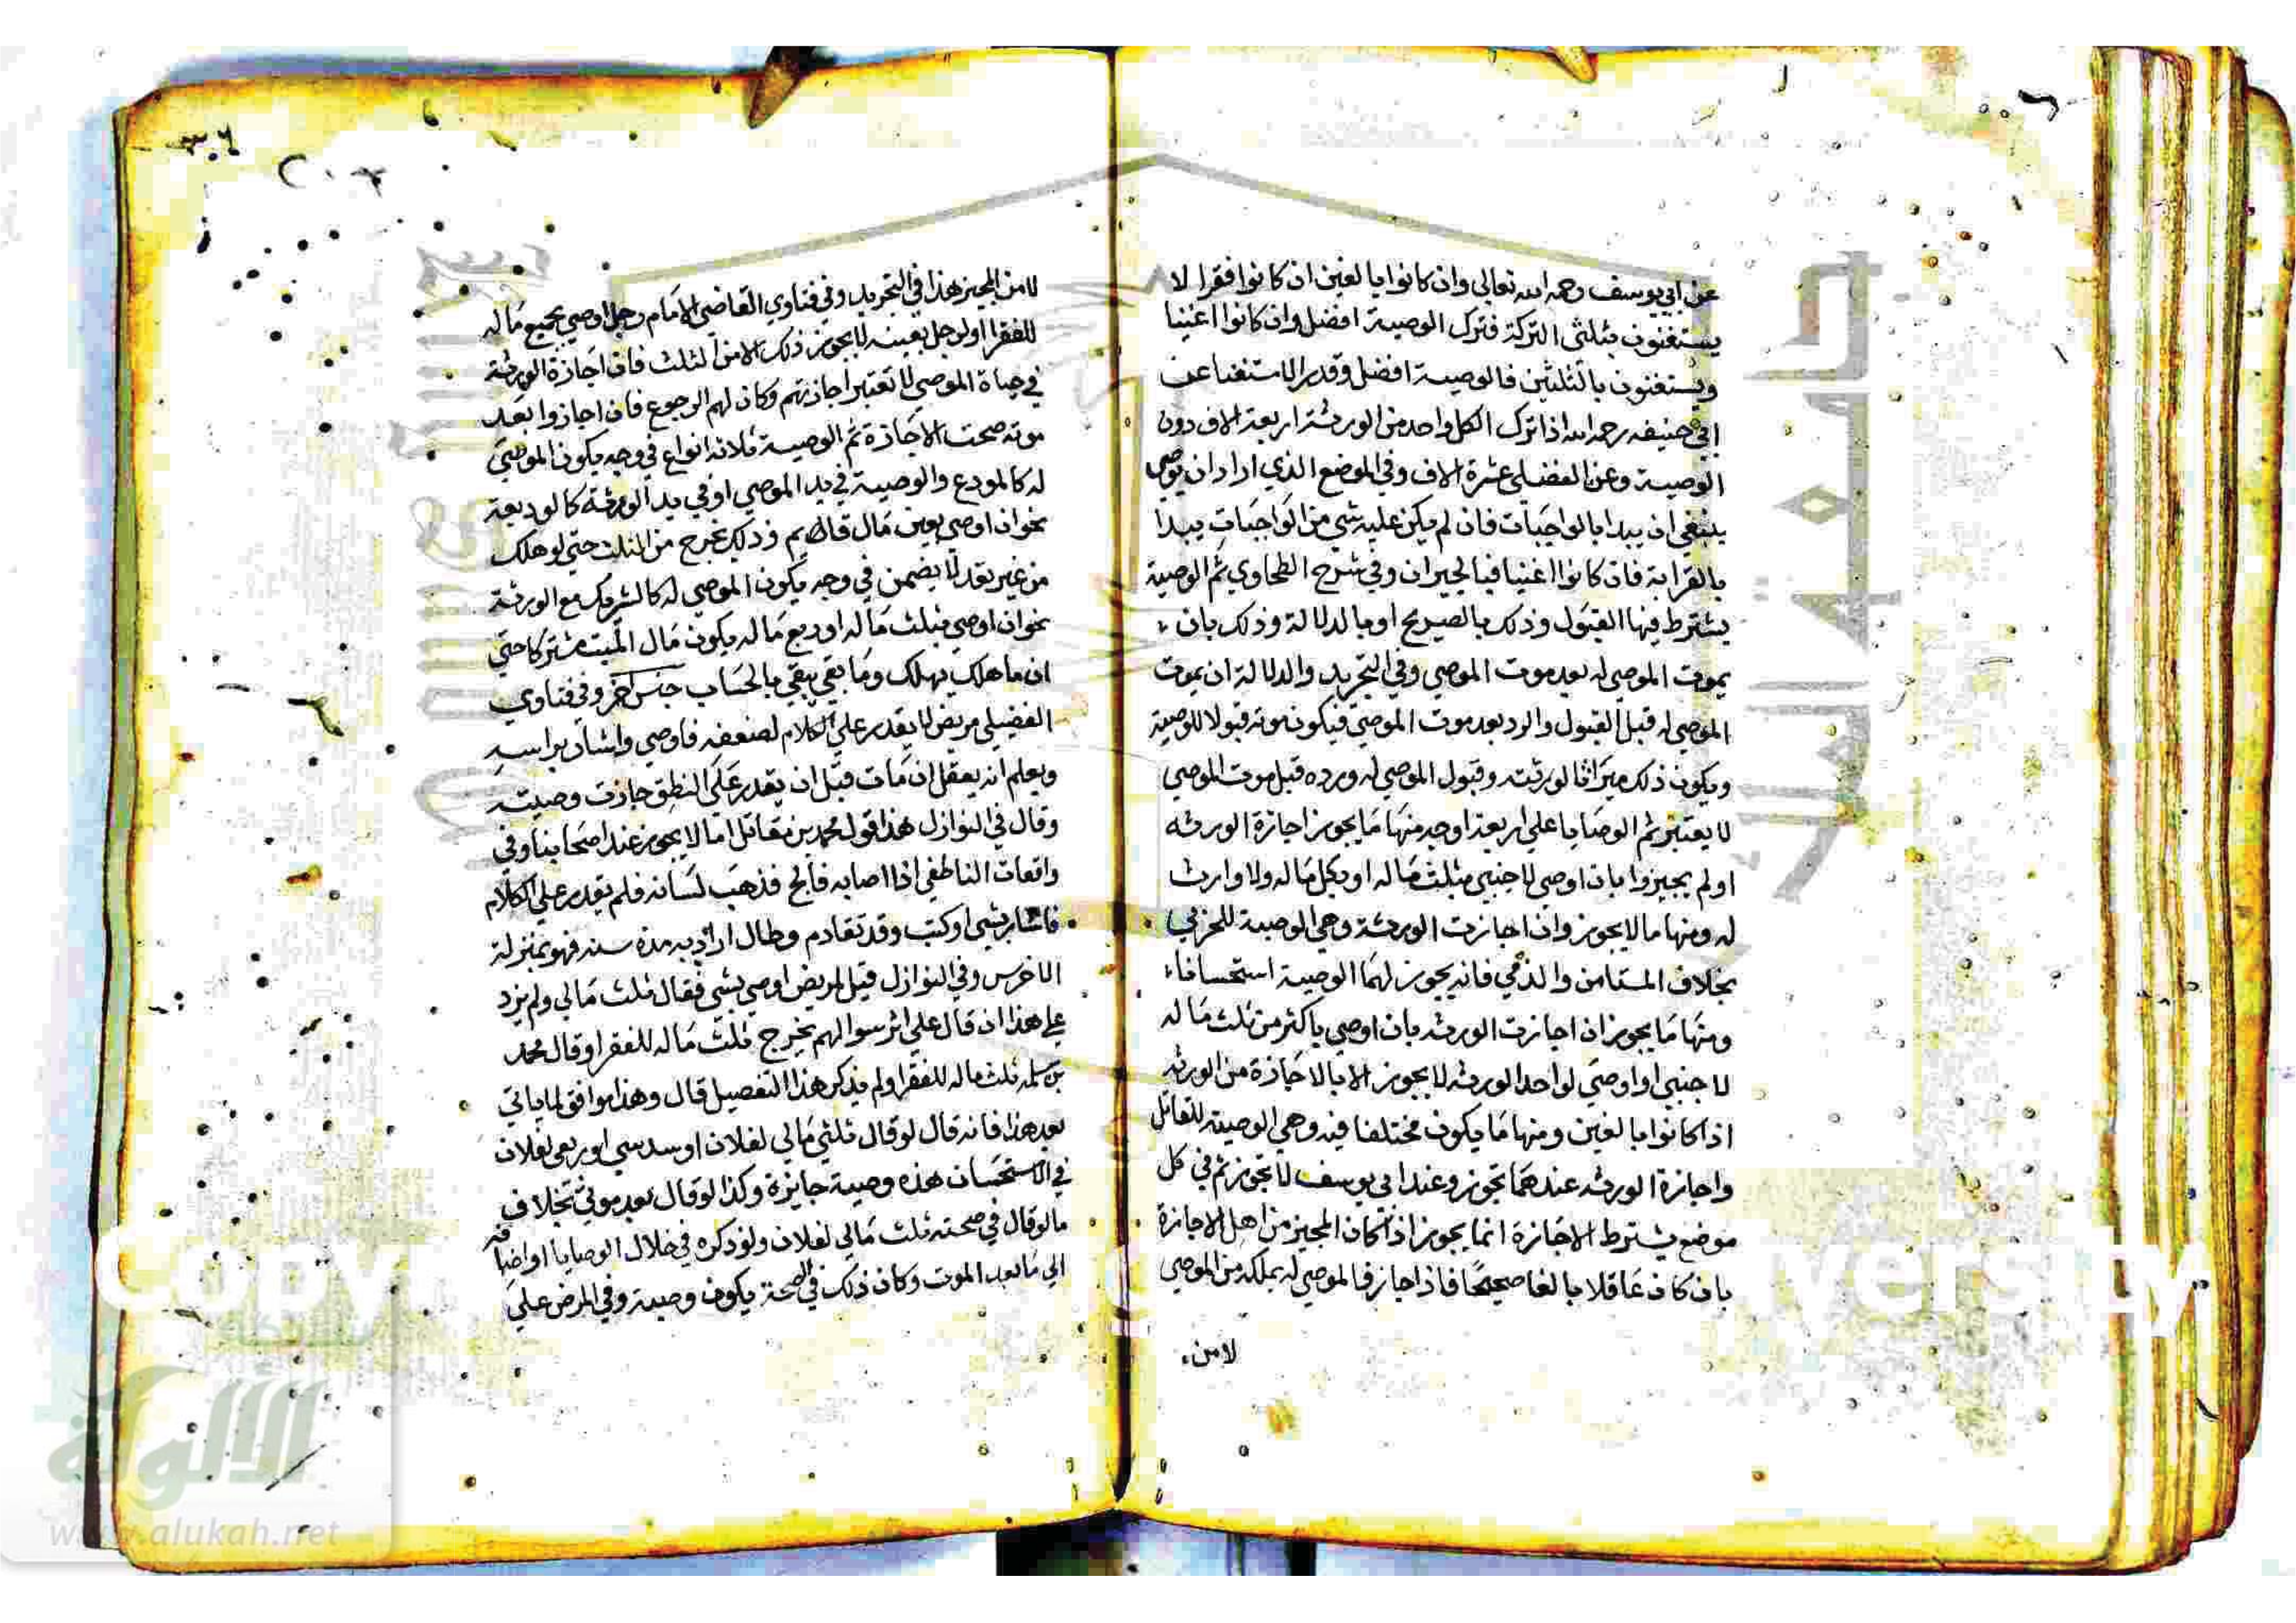 عن ابي يوسف رحمه الله تعالي وان كانوا بالغين ان كانوا فقرا لا
يستغنون بثلثي التركة فترك الوصية افضل وان كانوا اغنيا
ويستغنون بالثلثين فالوصية افضل وقدر الاستغنا عن
ابي حنيفه رحمه الله اذا ترك الكل واحد من الورثة اربعة الاف دون
الوصية وعن الفضلي عشرة الاف وفي الموضع الذي اراد ان يوصي
ينبغي ان يبدا بالواجبات فان لم يكن عليه شي من الواجبات يبدا
بالقرابة فان كانوا اغنيا فبالجيران وفي شرح الطحاوي ثم الوصية
يشترط فيها القبول وذلك بالصريح او بالدلالة وذلك بان
يموت الموصي له بعد موت الموصي وفي التجريد والدلالة ان يموت
الموصي له قبل القبول والرد بعد موت الموصي فيكون موته قبولا للوصية
ويكون ذلك ميراثا لورثته وقبول الموصي له ورده قبل موت الموصي
لا يعتبر ثم الوصايا علي اربعة اوجه منها ما يجوز اجازة الورثه
او لم يجيزوا بان اوصي لاجنبي بثلث ماله او بكل ماله ولا وارث
له ومنها ما لا يجوز وان اجازت الورثة وهي الوصية للحربي
بخلاف المستامن والذمي فانه يجوز لهما الوصية استحسانا
ومنها ما يجوز ان اجازت الورثه بان اوصي باكثر من ثلث ماله
لاجنبي او اوصي لواحد الورثه لا يجوز الا بالاجازة من الورثه
اذا كانوا بالغين ومنها ما يكون مختلفا فيه وهي الوصية للقاتل
واجازة الورثه عندهما تجوز وعند ابي يوسف لا تجوز ثم في كل
موضع يشترط الاجازة انما يجوز اذا كان المجيز من اهل الاجازة
بان كان عاقلا بالغا صحيحا فاذا اجاز فالموصي له يملكه من الموصي
لا من
٣٠٤
٢٠٣
لا من المجيز هذا في التجريد وفي فتاوي القاضي الامام رجل اوصي بجميع ماله
للفقرا او لرجل بعينه لا يجوز ذلك الا من الثلث فان اجازة الورثة
في حياة الموصي لا تعتبر اجازتهم وكان لهم الرجوع فان اجازوا بعد
موته صحت الاجازة ثم الوصية ثلاثه انواع في وجه يكون الموصي
له كالمودع والوصية في يد الموصي او في يد الورثة كالوديعة
نحو ان اوصي بعين مال قائم وذلك يخرج من الثلث حتي لو هلك
من غير تعد لا يضمن في وجه يكون الموصي له كالشريك مع الورثة
نحو ان اوصي بثلث ماله او ربع ماله يكون مال الميت مشتركا حتي
ان ما هلك يهلك وما بقي يبقي بالحساب جنس اخر وفي فتاوي
الفضيلي مريض لا يقدر علي الكلام لضعفه فاوصي واشار براسه
ويعلم انه يعقل ان مات قبل ان يقدر علي النطق جازت وصيته
وقال في النوازل هذا قول محمد بن مقاتل اما لا يجوز عند اصحابنا وفي
واقعات الناطفي اذا اصابه فالج فذهب لسانه فلم يقدر علي الكلام
فاشار بشي او كتب وقد تقادم وطال اراد به مدة سنه فهو بمنزلة
الاخرس وفي النوازل قيل لمريض اوصي بشي فقال ثلث مالي ولم يزد
علي هذا ان قال علي اثر سوالهم يخرج ثلث ماله للفقرا وقال محمد
بن سلمه ثلث ماله للفقرا ولم يذكر هذا التفصيل قال وهذا موافق لما ياتي
بعد هذا فانه قال لو قال ثلثي مالي لفلان او سدسي او ربعي لفلان
في الاستحسان هذه وصية جايزة وكذا لو قال بعد موتي بخلاف
ما لو قال في صحته ثلث مالي لفلان ولو ذكره في خلال الوصايا او اضافه
الي ما بعد الموت وكان ذلك في الصحة يكون وصية وفي المرض علي
جامعة الملك سعود
Copy
versity
شبكة
الألوكة
www.alukah.net